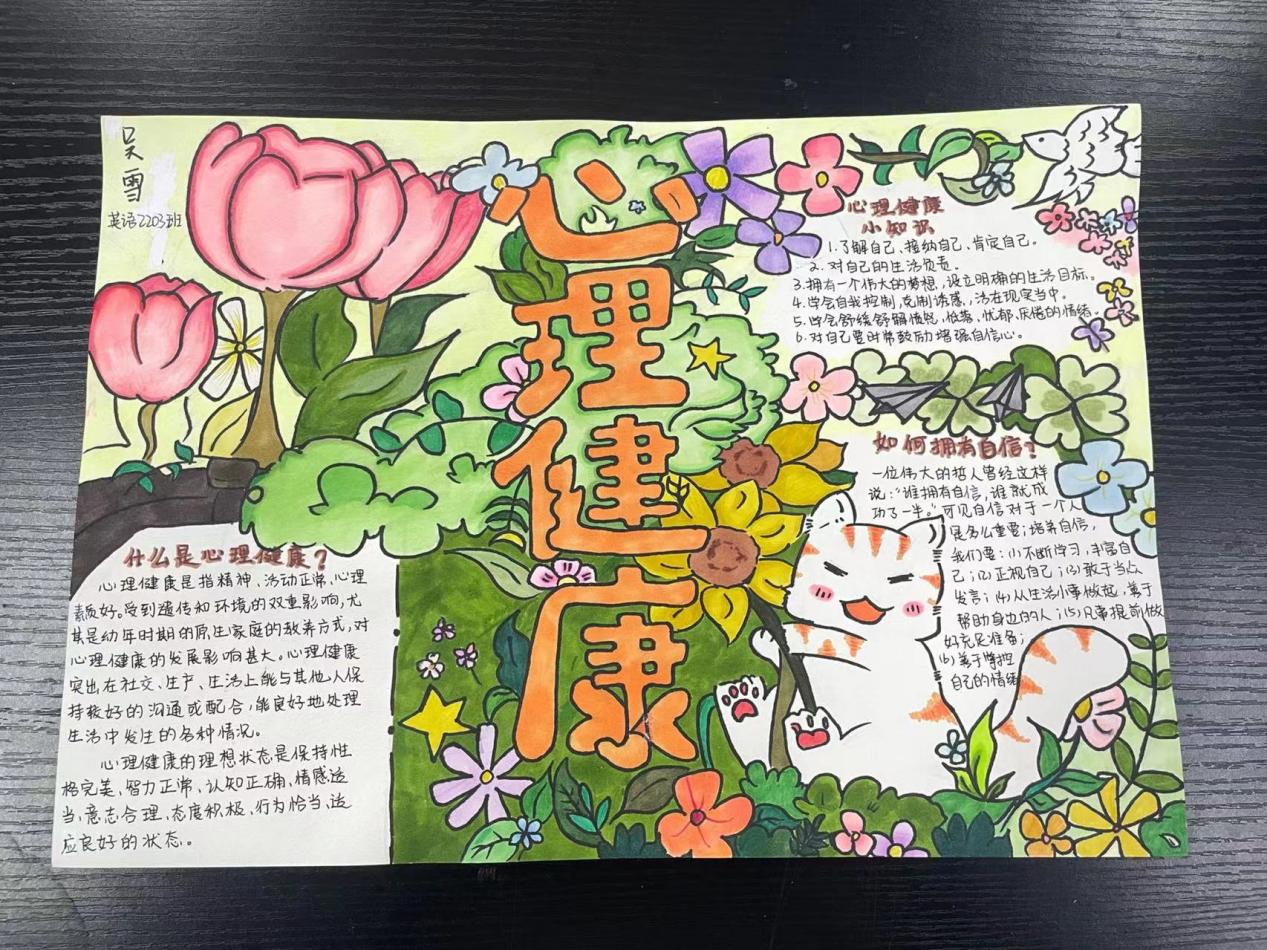 吴雪
英语2203班
心理健康
心理健康
小知识
1.了解自己、接纳自己、肯定自己。
2.对自己的生活负责。
3.拥有一个伟大的梦想,设立明确的生活目标。
4.学会自我控制,克制诱惑,活在现实当中。
5.学会舒缓舒解愤怒、低落、忧郁、厌倦的情绪。
6.对自己要时常鼓励增强自信心。
如何拥有自信?
一位伟大的哲人曾经这样
说:"谁拥有自信,谁就成
功了一半。"可见自信对于一个人
是多么重要;培养自信,
我们要:(1)不断学习,丰富自
己;(2)正视自己;(3)敢于当众
发言;(4)从生活小事做起,善于
帮助身边的人;(5)凡事提前做
好充足准备;
(6)善于掌控
自己的情绪
什么是心理健康?
心理健康是指精神、活动正常、心理
素质好。受到遗传和环境的双重影响,尤
其是幼年时期的原生家庭的教养方式,对
心理健康的发展影响甚大。心理健康
突出在社交、生产、生活上能与其他人保
持较好的沟通或配合,能良好地处理
生活中发生的各种情况。
心理健康的理想状态是保持性
格完美、智力正常、认知正确、情感适
当、意志合理、态度积极、行为恰当、适
应良好的状态。